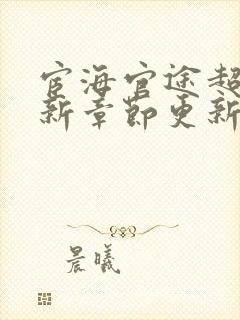 宦海官途超
新章节更新
晨曦